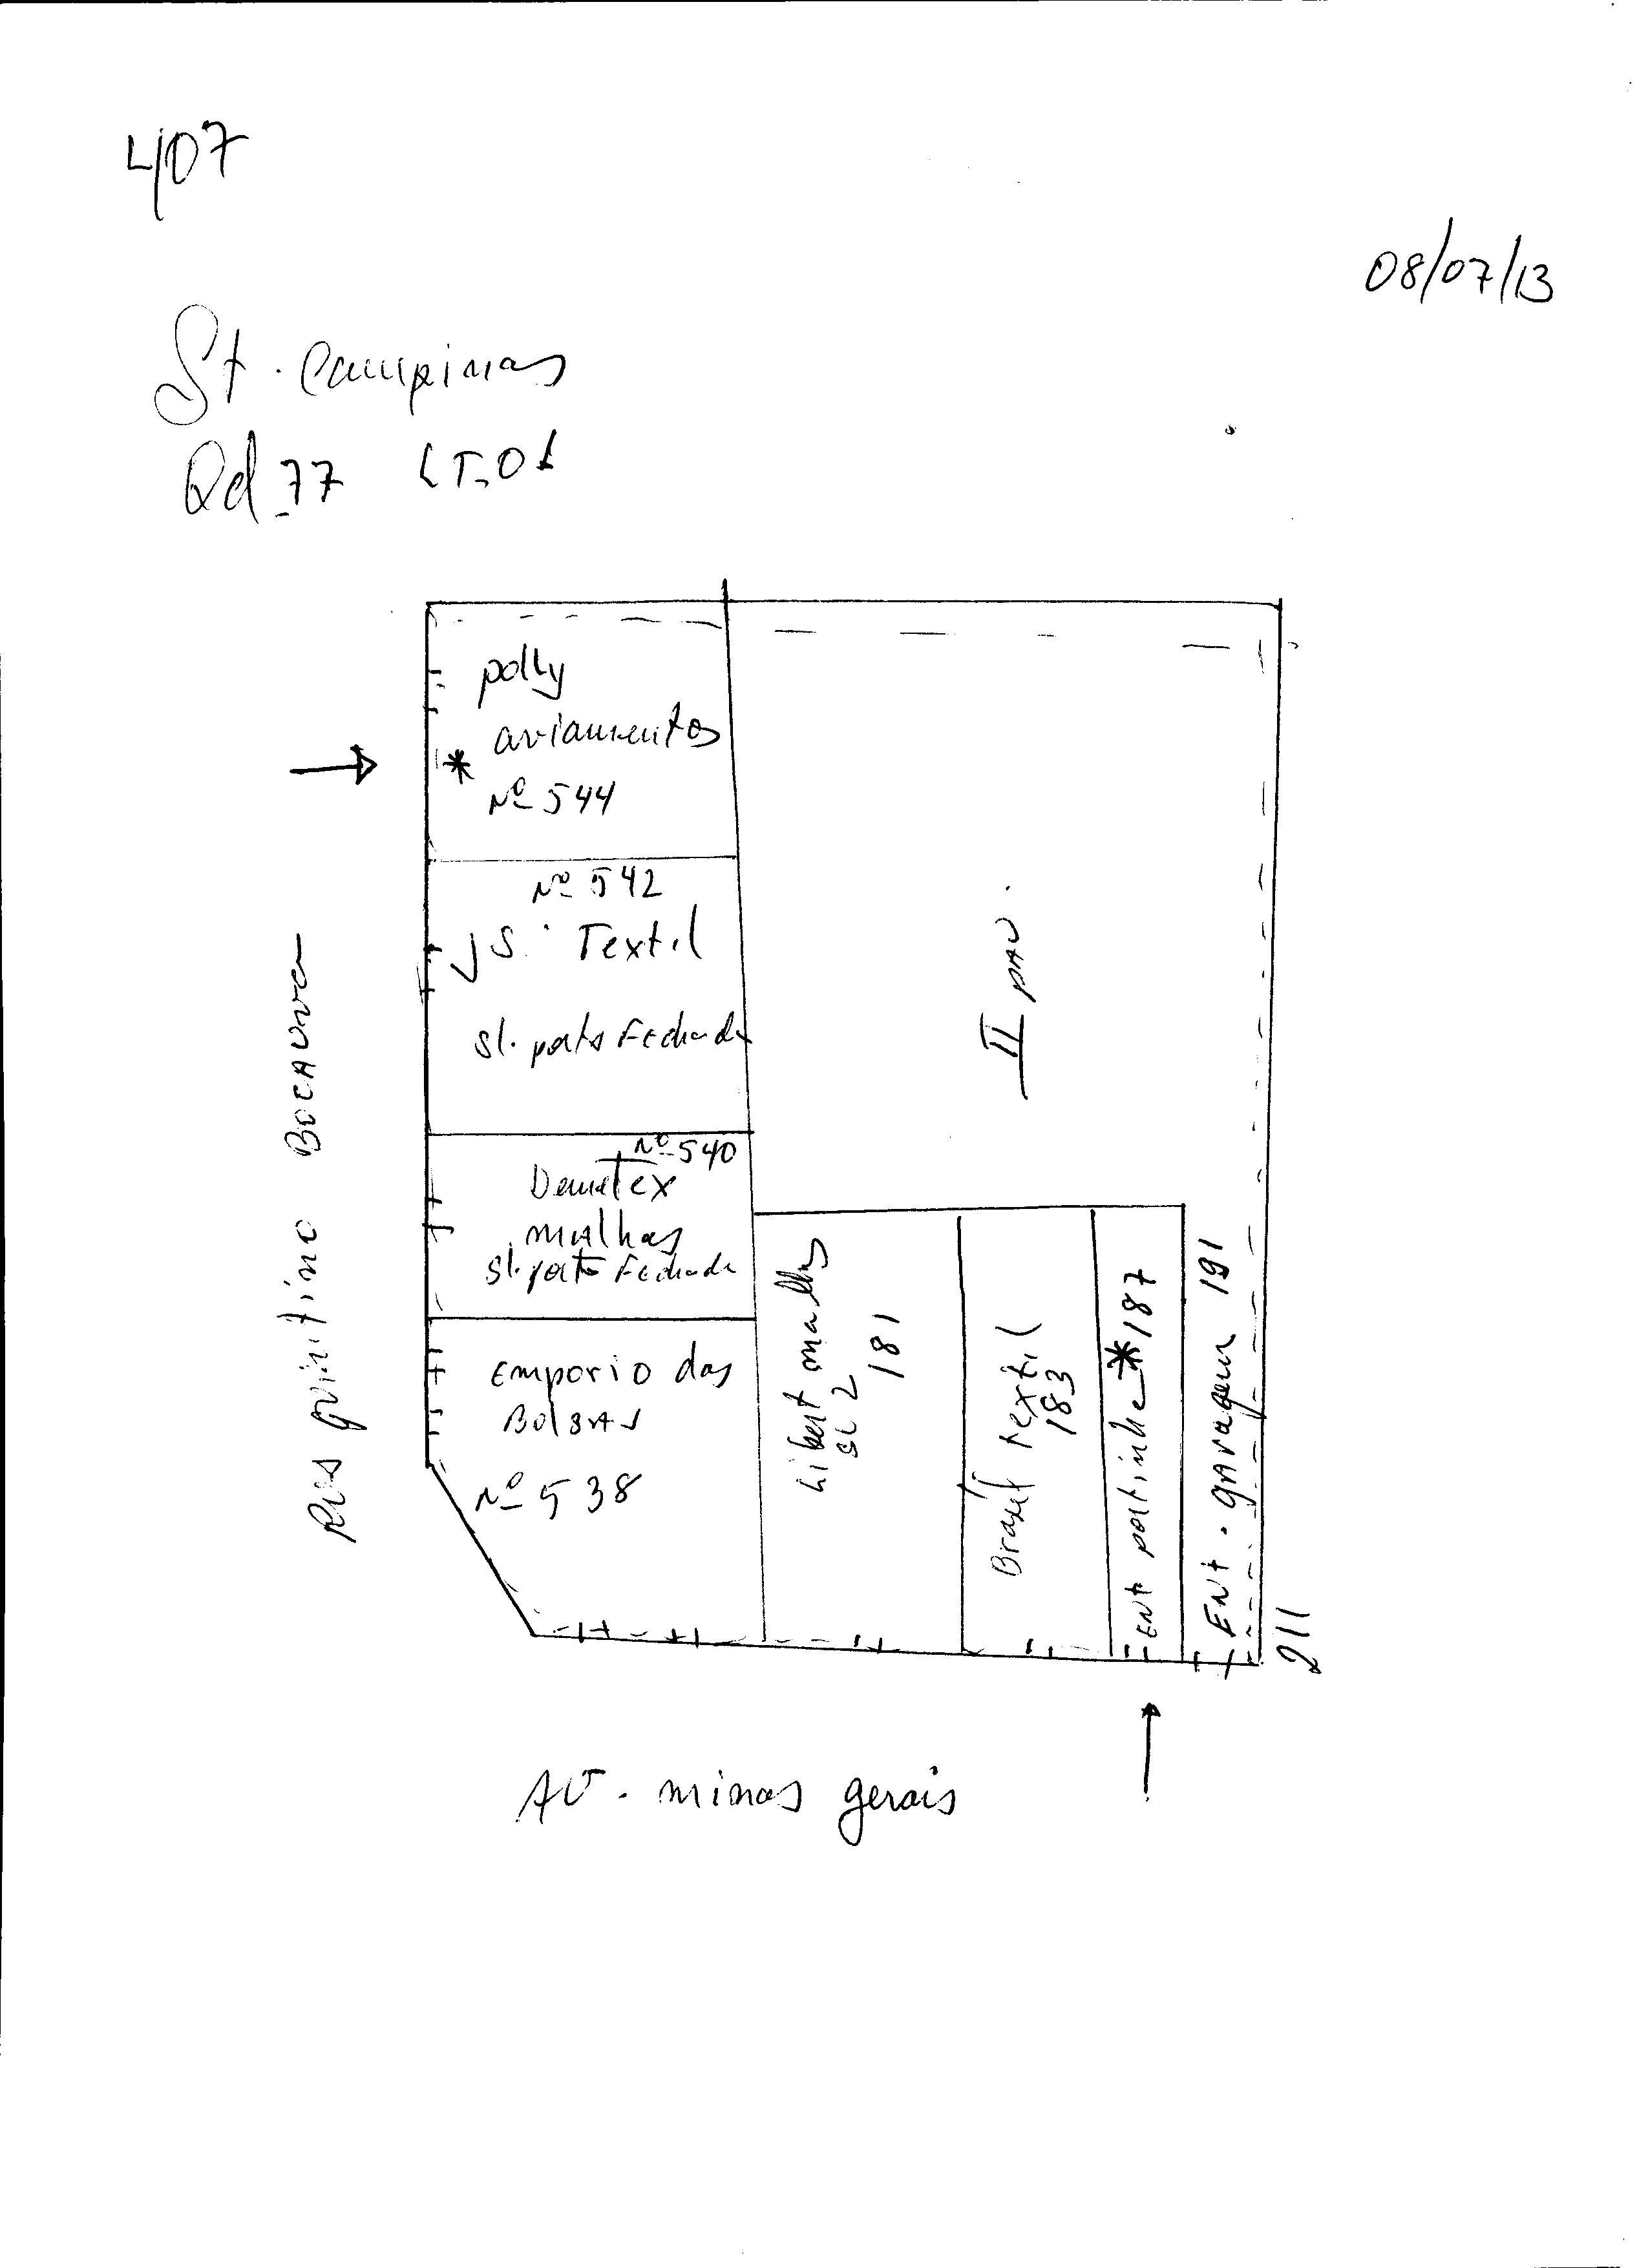 407
08/07/13
St. Campinas
Qd_77 LT_01
polly
aviamentos
* Nº 544
Nº 542
JS. Textil
sl. porta Fechada
Nº 540
DemeTex
malhas
sl. porta Fechada
Emporio das
BolsAs
Nº 538
II pav.
Libert malhas
SL 2
181
Brasil textil
183
ENt portinha * 187
ENt. gAragem 191
211
Rua quintino BOCAUVA
AV. minas gerais